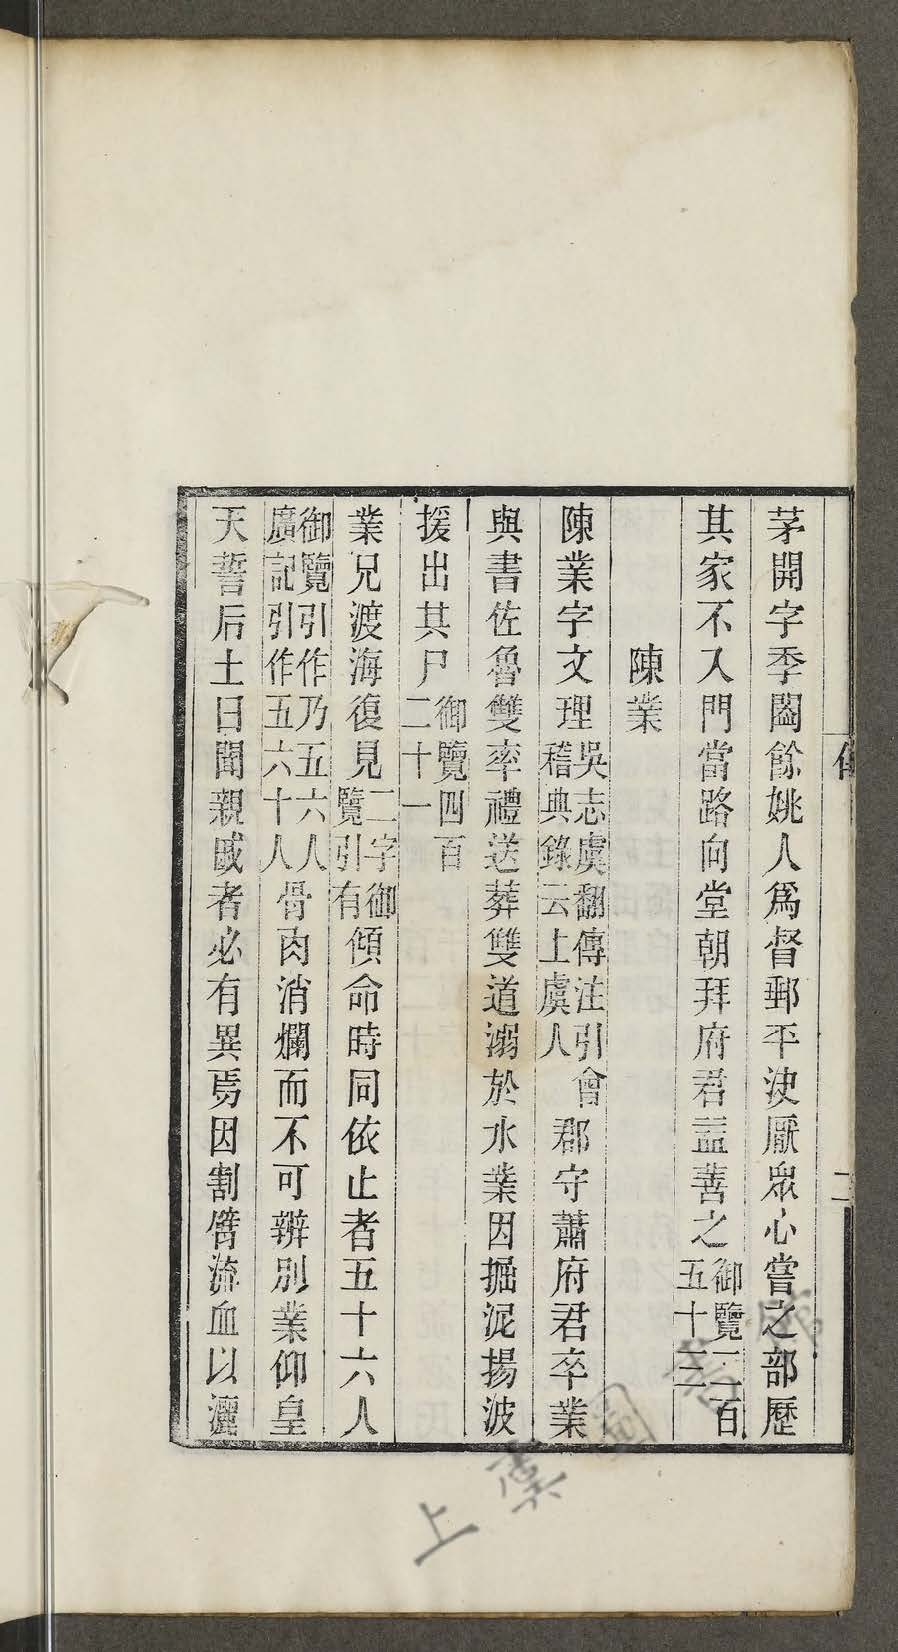 茅開字季闓餘姚人爲督郵平決厭眾心嘗之部歷
其家不入門當路向堂朝拜府君益善之御覽二百五十三
陳業
陳業字文理吳志虞翻傳注引會稽典錄云上虞人郡守蕭府君卒業
與書佐魯雙率禮送葬雙道溺於水業因掘泥揚波
援出其尸御覽四百二十一
業兄渡海復見二字御覽引有傾命時同依止者五十六人
御覽引作乃五六人廣記引作五六十人骨肉消爛而不可辨別業仰皇
天誓后土曰聞親戚者必有異焉因割臂流血以灑
二
上虞圖書館